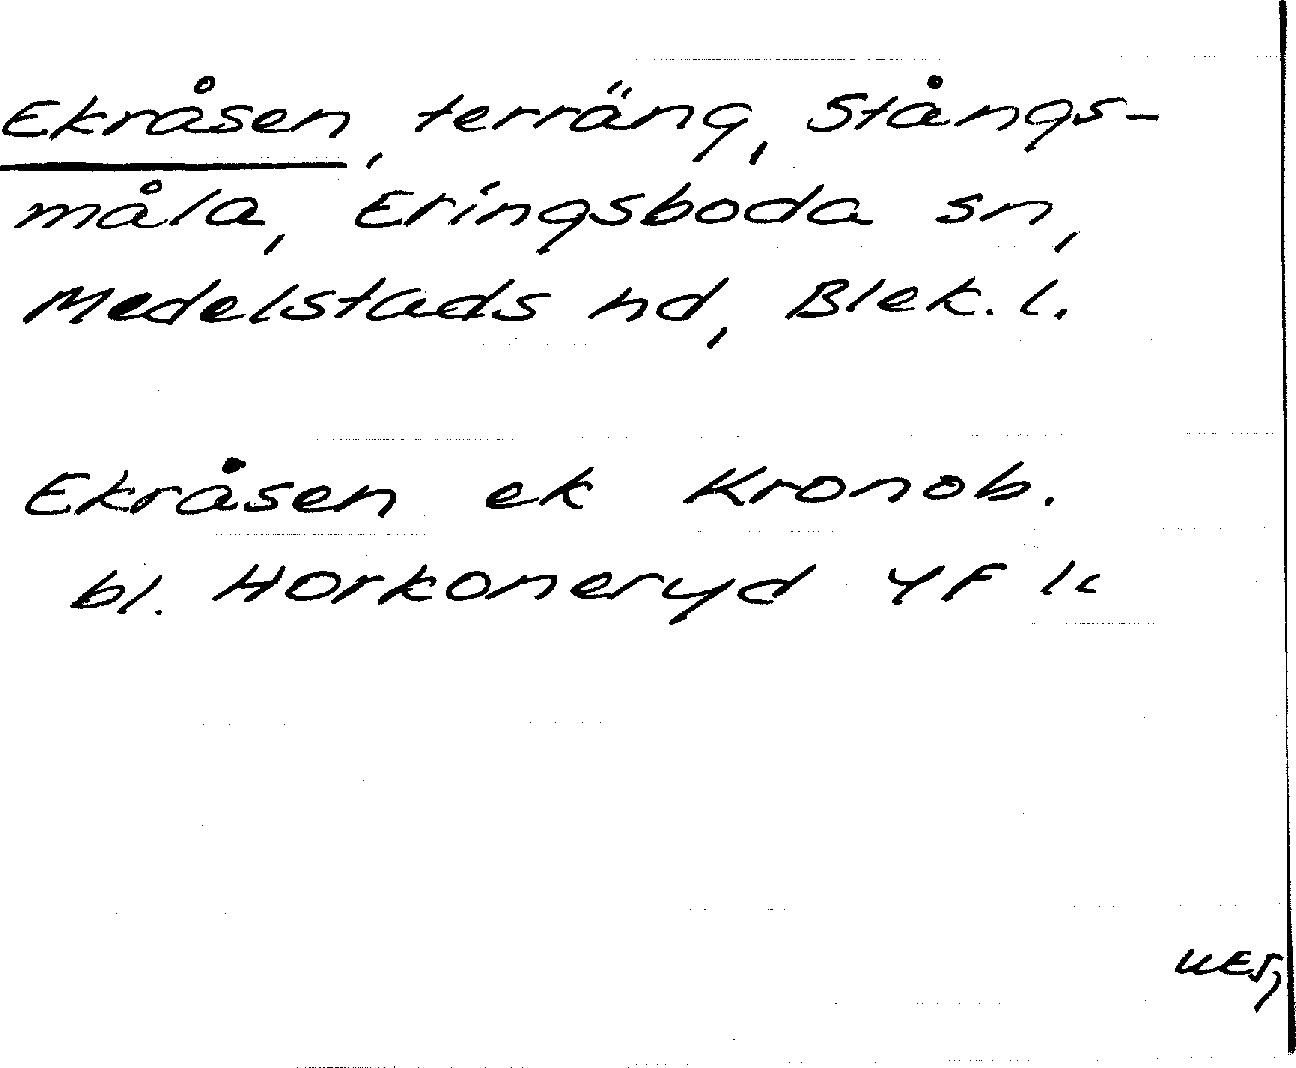 Ekråsen, terräng, Stångs-
måla, Eringsboda sn,
Medelstads hd, Blek. l.
Ekråsen ek Kronob.
bl. Horkoneryd 4F